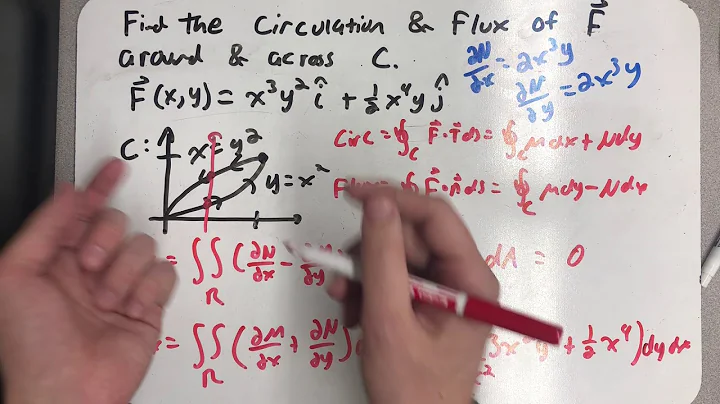 Find the Circulation & Flux of F⃗
around & across C.
∂N/∂x = 2x³y
∂N/∂y = 2x³y
F⃗(x,y) = x³y² î + ½x⁴y ĵ
C: x = y²
y = x²
Circ = ∮_C F⃗·T⃗ds = ∮_C Mdx + Ndy
Flux = ∮ F⃗·n⃗ds = ∮_C Mdy − Ndx
= ∬_R (∂N/∂x − ∂/∂y dA = 0
= ∬_R (∂M/∂x + ∂N/∂y) 3x² + ½x⁴) dydx